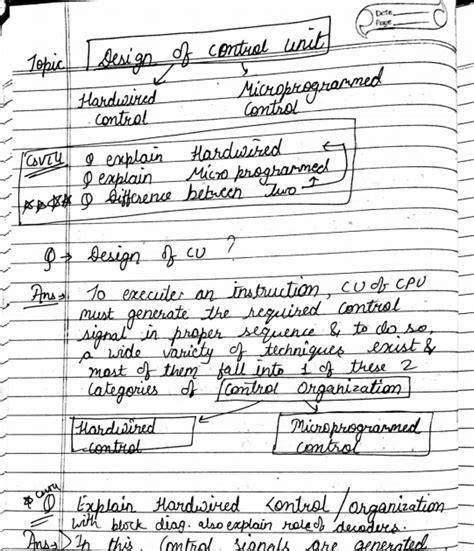 Date
Page
Topic Design of control unit
Hardwired control
Microprogrammed Control
CSVTU Q explain Hardwired
Q explain Micro programmed
Q Difference between Two
Q → Design of CU ?
Ans → To execute an instruction, CU of CPU
must generate the required control
signal in proper sequence & to do so,
a wide variety of techniques exist &
most of them fall into 1 of these 2
categories of Control Organization
Hardwired control
Microprogrammed control
CSVTU Q Explain Hardwired Control / Organization
with block diag. also explain role of decoders.
Ans → In this, Control signals are generated